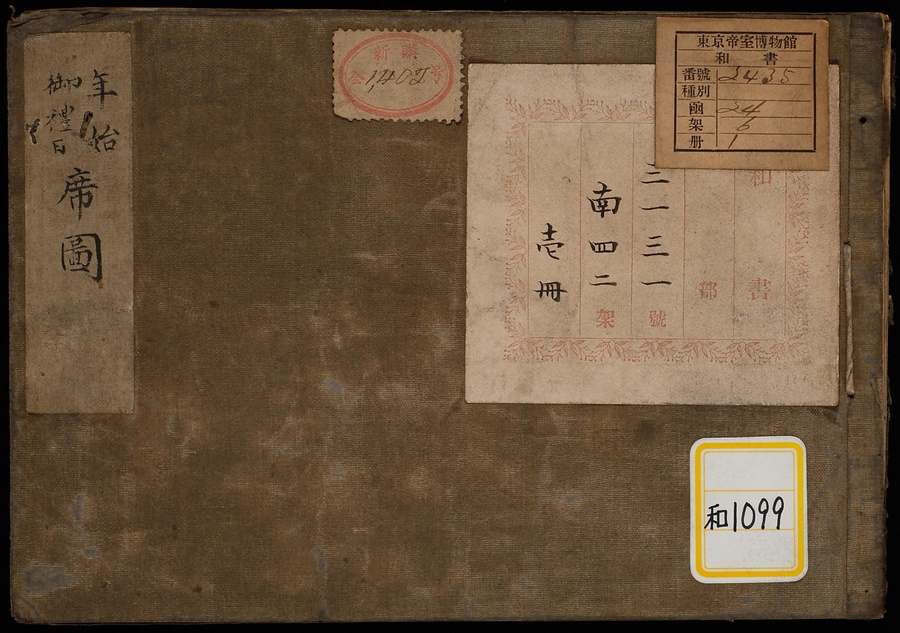 年始
御禮日
席圖
新
1,402
東京帝室博物館
和書
番號 2435
種別
函 24
架 6
册 1
和書
部
三一三一號
南四二架
壱冊
和1099